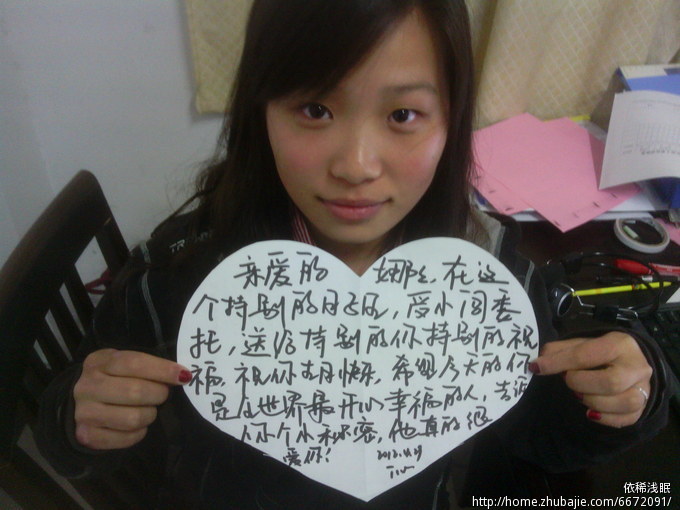 亲爱的 娜娜,在这
个特别的日子里,受小周委
托,送给特别的你特别的祝
福,祝你生日快乐,希望今天的你
是全世界最开心幸福的人,告诉
你个小秘密,他真的很
爱你!
依稀浅眠
http://home.zhubajie.com/6672091/